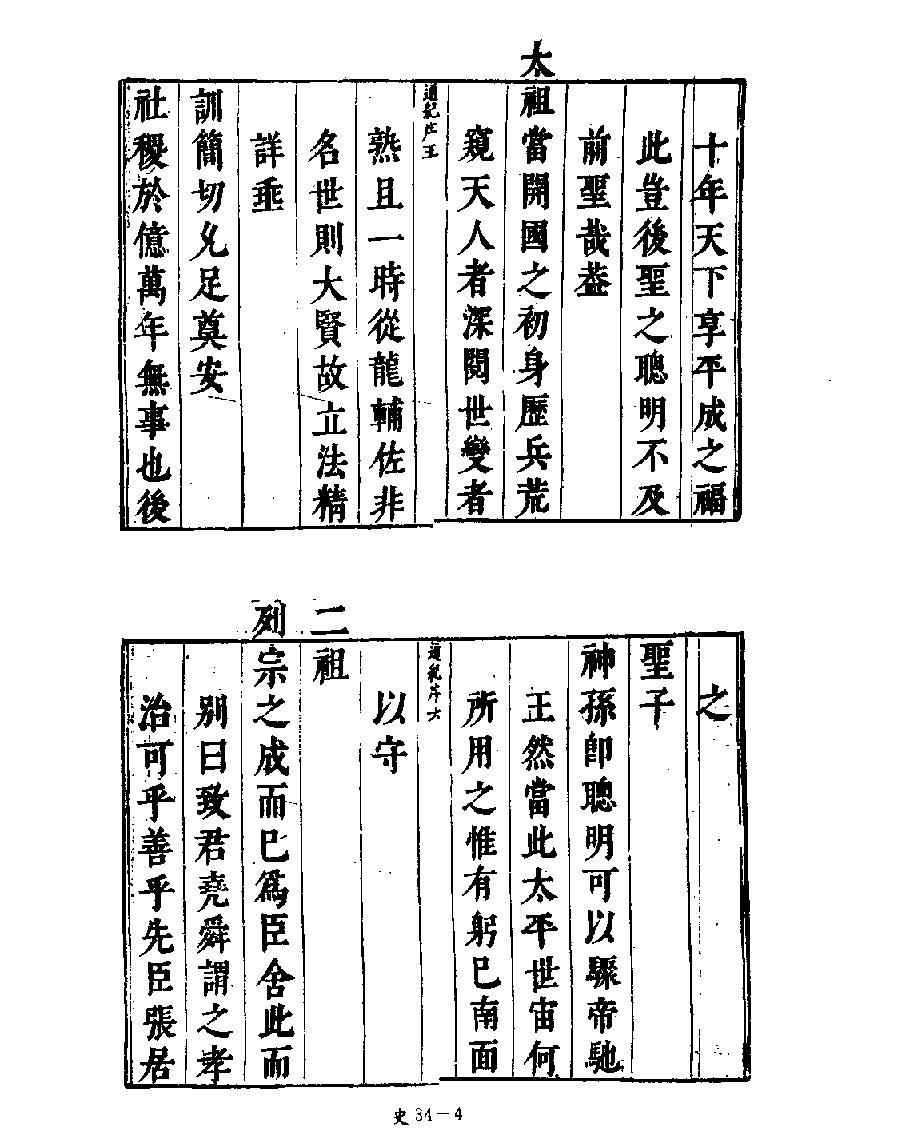 十年天下享平成之福
此豈後聖之聰明不及
前聖哉葢
太祖當開國之初身歷兵荒
窺天人者深閱世變者
通紀序五
熟且一時從龍輔佐非
名世則大賢故立法精
詳垂
訓簡切允足奠安
社稷於億萬年無事也後
之
聖子
神孫卽聰明可以驟帝馳
王然當此太平世宙何
所用之惟有躬巳南面
通紀序六
以守
二祖
列宗之成而巳爲臣舍此而
别曰致君堯舜謂之孝
治可乎善乎先臣張居
史 34－4